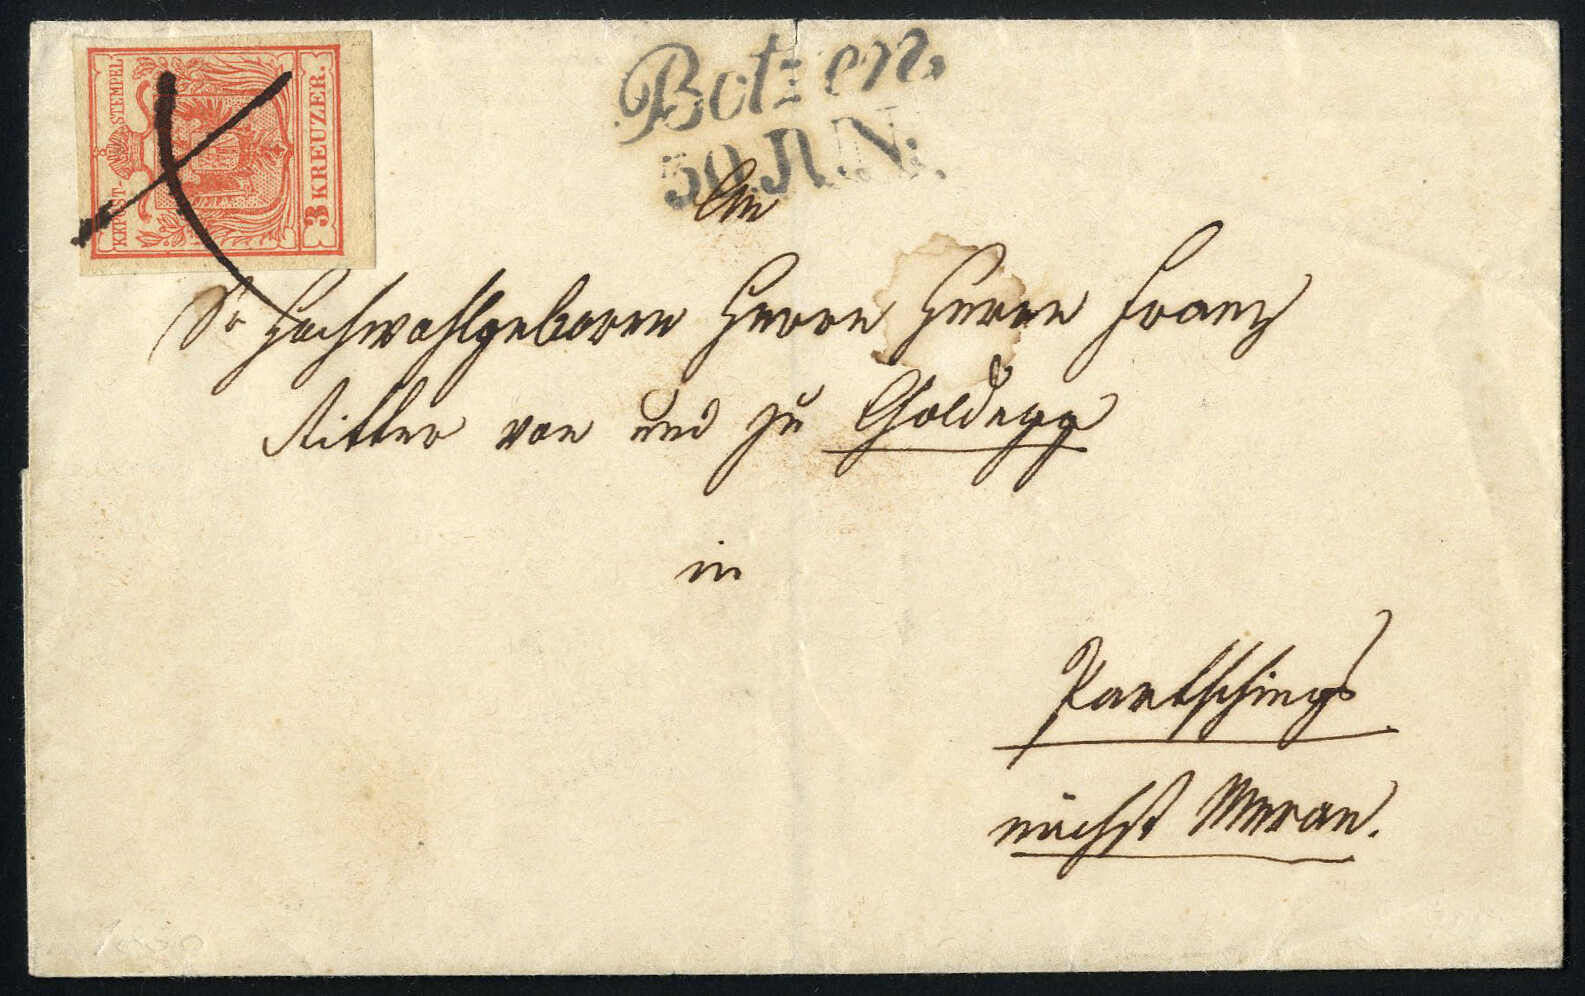 KKPOST-STEMPEL
3 KREUZER.
Botzen.
30. JUN:
An
Sr Hochwohlgeboren Herrn Herrn Franz
Ritter von und zu Goldegg
in
Partschings
nächst Meran.